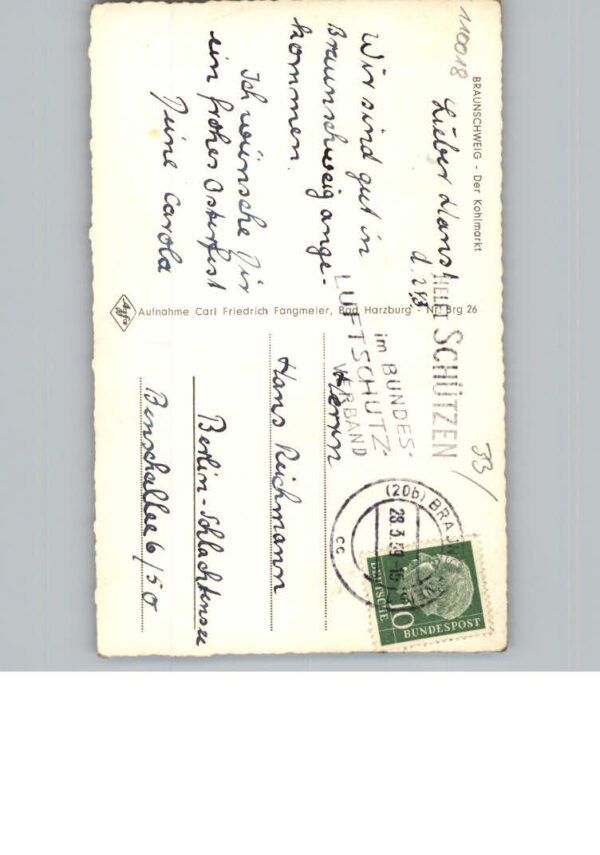 110018
BRAUNSCHWEIG - Der Kohlmarkt
Lieber Hans!
Wir sind gut in
Braunschweig ange-
kommen.
Ich wünsche Dir
ein frohes Osterfest
Deine Carola
Agfa
Aufnahme Carl Friedrich Fangmeier, Bad Harzburg - Nr. Brg 26
SCHÜTZEN
im BUNDES-
LUFTSCHUTZ-
VERBAND
33/
(20b) BRAUN
28.3.59-16
cc
DEUTSCHE
10
BUNDESPOST
Herrn
Hans Reichmann
Berlin-Schlachtensee
Benschallee 6/50